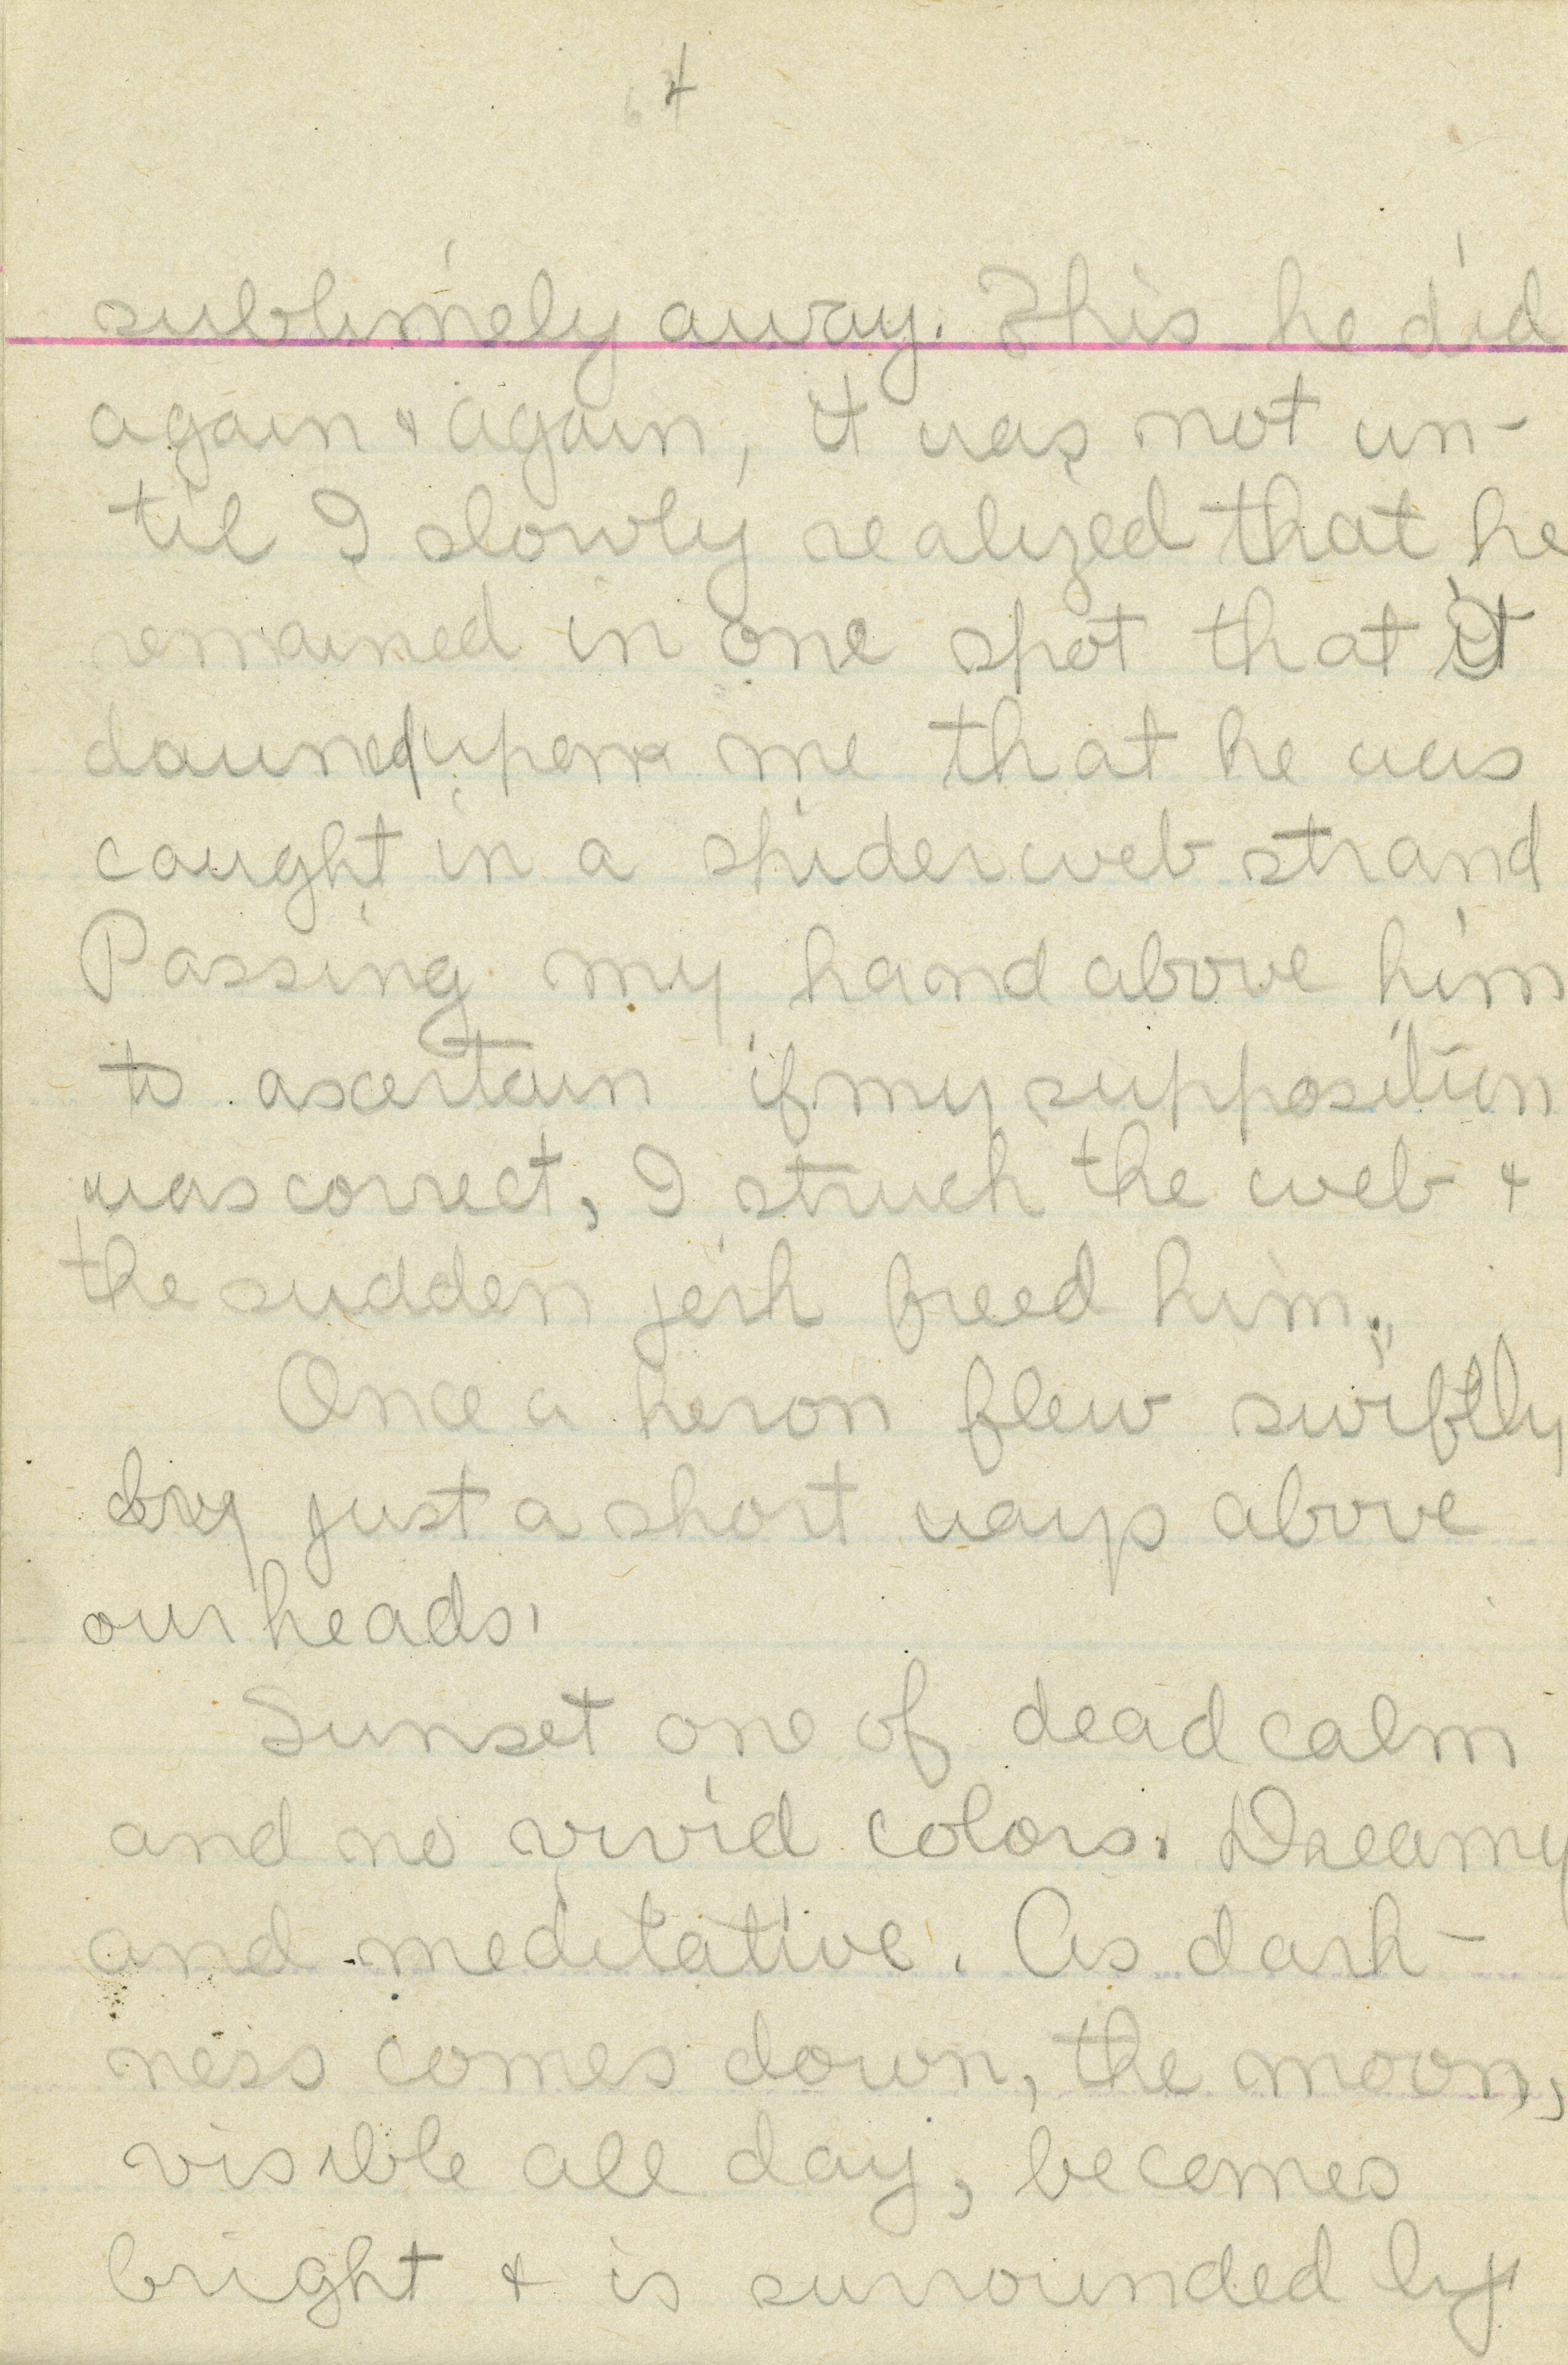 64
sublimely away. This he did
again & again, it was not un-
til I slowly realized that he
remained in one spot that it
dawned upon me that he was
caught in a spiderweb strand
Passing my hand above him
to ascertain if my supposition
was correct, I struck the web &
the sudden jerk freed him.
Once a heron flew swiftly
by just a short ways above
our heads.
Sunset one of dead calm
and no vivid colors. Dreamy
and meditative. As dark-
ness comes down, the moon,
visible all day, becomes
bright & is surrounded by